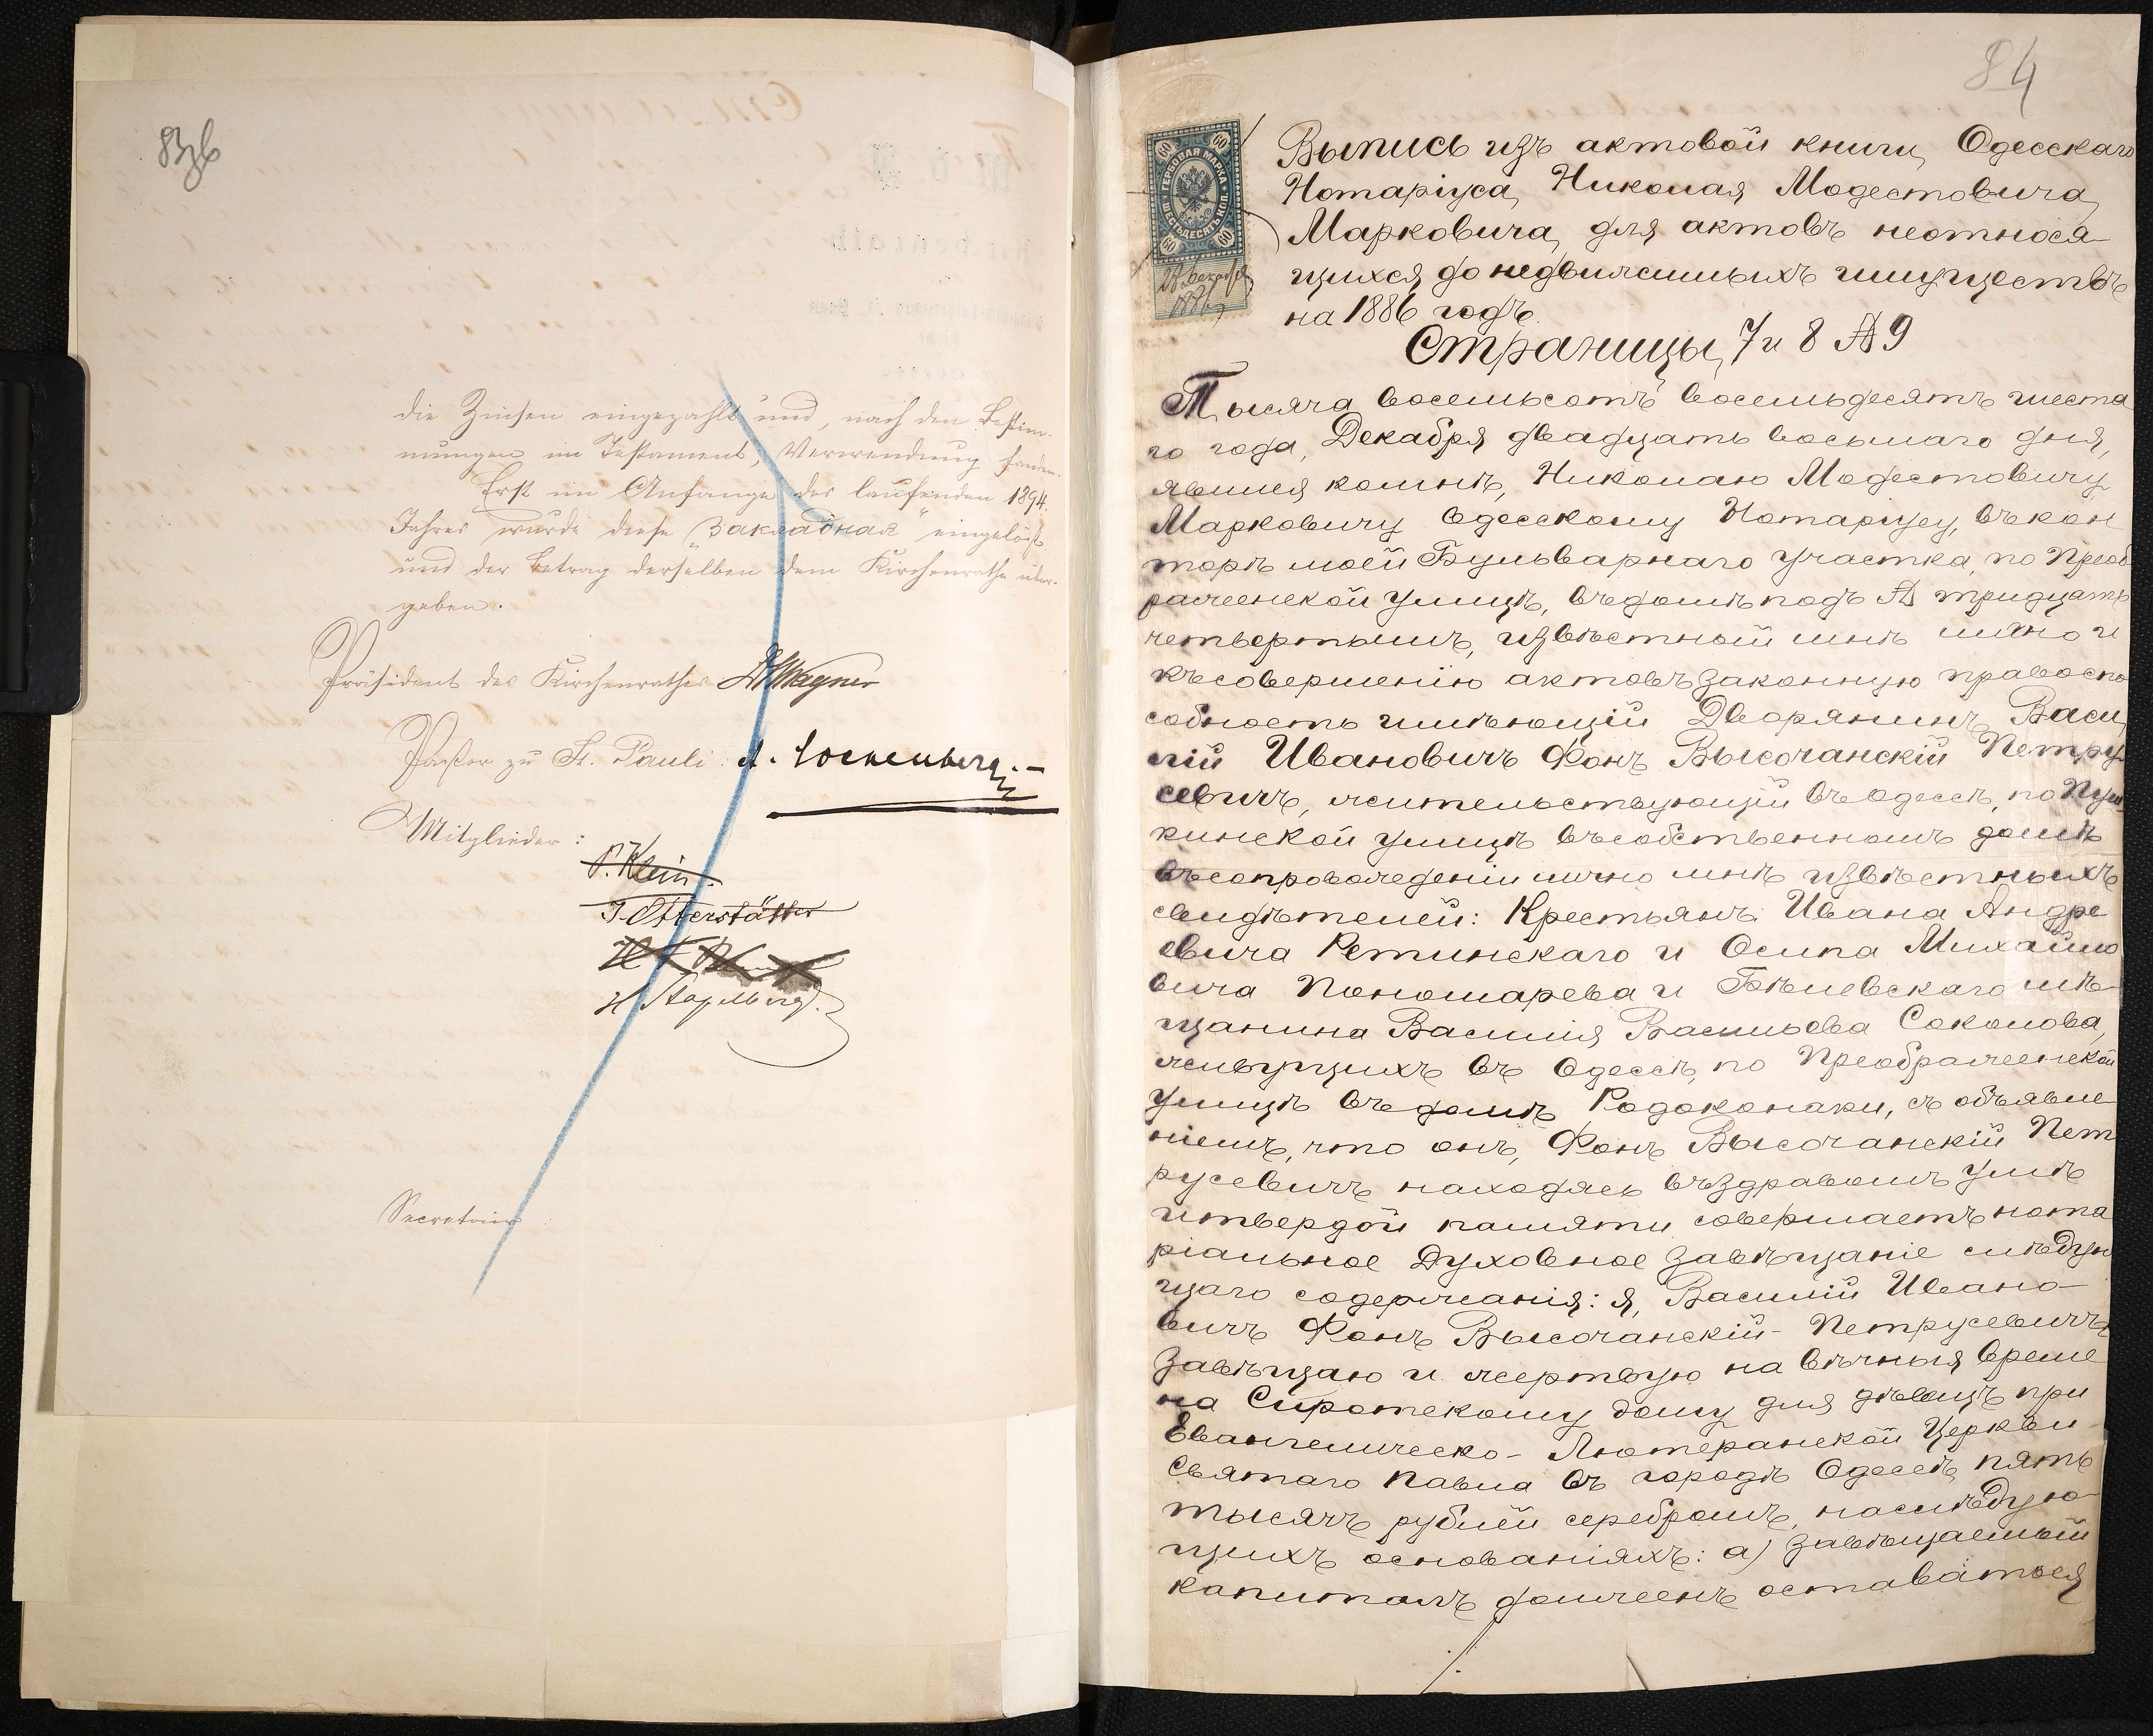 83зв
die Zinsen eingezahlt und, nach den Bestim-
mungen im Testament, Verwendung fanden.
Erst im Anfange des laufenden 1894.
Jahres wurde diese „Закладная" eingelöst
und der Betrag derselben dem Kirchenrathe über-
geben.
Präsident des Kirchenrathes Wagner
Pastor zu St. Pauli:
Mitglieder:
P. Klein.
J. Otterstätter
H Stapelberg.
Secretair
84
60 60
ГЕРБОВАЯ МАРКА
ШЕСТЬДЕСЯТЪ КОП.
60 60
28 Декабря
1886
Выпись изъ актовой книги Одесскаго
Нотаріуса, Николая Модестовича
Марковича, для актовъ неотнося-
щихся до недвижимыхъ имуществъ
на 1886 годъ.
Страницы 7 и 8 № 9
Тысяча восемьсотъ восемьдесятъ шеста
го года, Декабря двадцать восьмаго дня,
явился ко мнѣ, Николаю Модестовичу
Марковичу Одесскому Нотаріусу, въ кон
торѣ моей Бульварнаго участка, по Преоб
раженской улицѣ, въ домѣ подъ № тридцать
четвертымъ, извѣстный мнѣ лично и
къ совершенію актовъ законную правоспо
собность имѣющій Дворянинъ Васи
лій Ивановичъ Фонъ Высочанскій Петру
севичъ, жительствующій въ Одессѣ, по Пуш
кинской улицѣ въ собственномъ домѣ
въ сопровожденіи лично мнѣ извѣстныхъ
свидѣтелей: Крестьянъ: Ивана Андре
евича Ретинскаго и Осипа Михайло
вича Пономарева и Бѣлевскаго мѣ-
щанина Василія Васильева Соколова,
живущихъ въ Одессѣ, по Преображенской
улицѣ въ домѣ Родоканаки, съ объявле
ніемъ, что онъ, Фонъ Высочанскій Пет
русевичъ находясь въ здравомъ умѣ
и твердой памяти совершаетъ нота
ріальное Духовное завѣщаніе слѣдую
щаго содержанія: я, Василій Ивано-
вичъ Фонъ Высочанскій-Петрусевичъ,
завѣщаю и жертвую на вѣчныя време
на Сиротскому дому для дѣвицъ при
Евангелическо-Лютеранской Церкви
Святаго Павла въ городѣ Одессѣ, пять
тысячъ рублей серебромъ, на слѣдую-
щихъ основаніяхъ: а) завѣщаемый
капиталъ долженъ оставаться